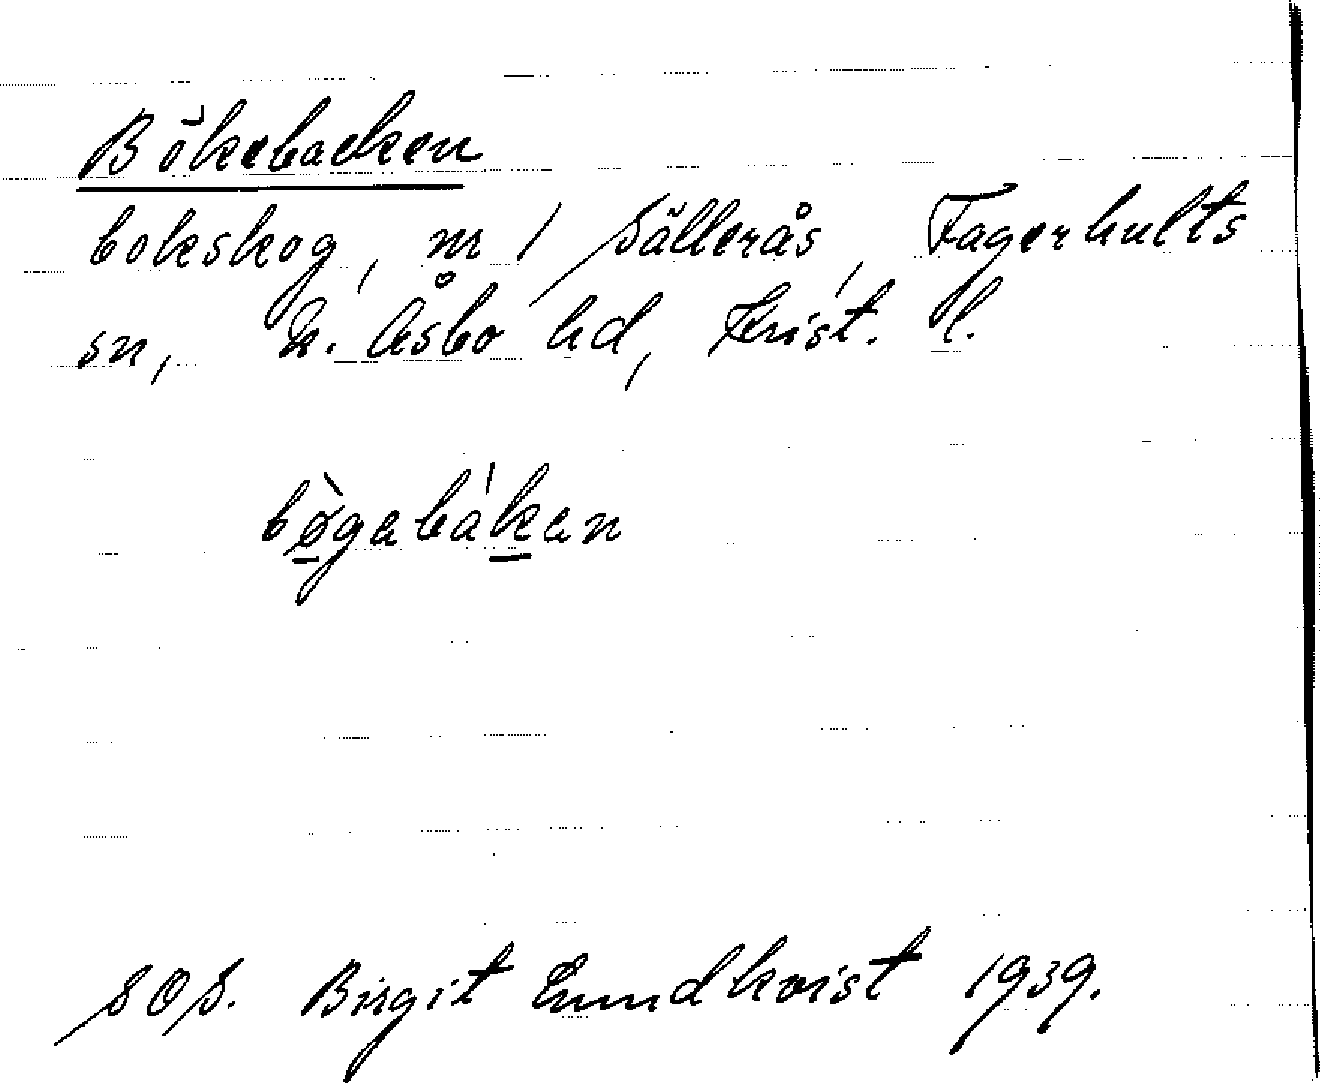 Bökebacken
bokskog, nr 1 Sällerås, Fagerhults
sn, N. Åsbo hd, Krist. l.
bø̀gabákan
SOS. Birgit Lundkvist 1939.